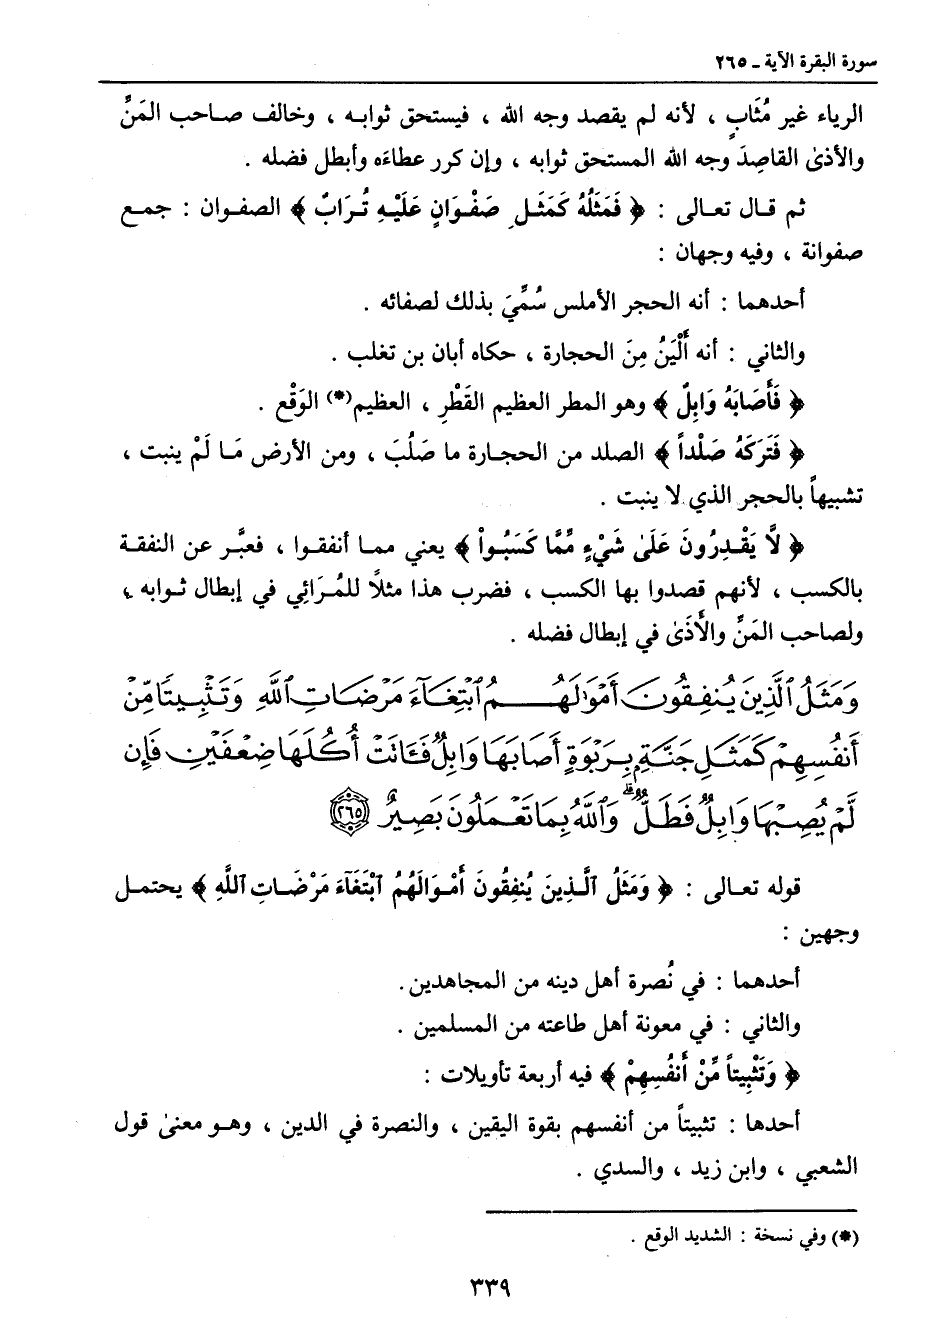 سورة البقرة الآية ـ ٢٦٥
الرياء غير مُثَابٍ ، لأنه لم يقصد وجه الله ، فيستحق ثوابه ، وخالف صاحب المَنِّ
والأذىٰ القاصِدَ وجه الله المستحق ثوابه ، وإن كرر عطاءَه وأبطل فضله .
ثم قال تعالى : ﴿ فَمَثَلُهُ كَمَثَلِ صَفْوَانٍ عَلَيْهِ تُرَابٌ ﴾ الصفوان : جمع
صفوانة ، وفيه وجهان :
أحدهما : أنه الحجر الأملس سُمِّيَ بذلك لصفائه .
والثاني : أنه أَلْيَنُ مِنَ الحجارة ، حكاه أبان بن تغلب .
﴿ فَأَصَابَهُ وَابِلٌ ﴾ وهو المطر العظيم القَطْرِ ، العظيم(*) الوَقْع .
﴿ فَتَرَكَهُ صَلْداً ﴾ الصلد من الحجارة ما صَلُبَ ، ومن الأرض مَا لَمْ ينبت ،
تشبيهاً بالحجر الذي لا ينبت .
﴿ لَّا يَقْدِرُونَ عَلَىٰ شَيْءٍ مِّمَّا كَسَبُواْ ﴾ يعني مما أنفقوا ، فعبَّر عن النفقة
بالكسب ، لأنهم قصدوا بها الكسب ، فضرب هذا مثلًا للمُرَائِي في إبطال ثوابه ،
ولصاحب المَنِّ والأَذَىٰ في إبطال فضله .
وَمَثَلُ الَّذِينَ يُنفِقُونَ أَمْوَٰلَهُمُ ٱبْتِغَآءَ مَرْضَاتِ ٱللَّهِ وَتَثْبِيتًا مِّنْ
أَنفُسِهِمْ كَمَثَلِ جَنَّةٍۭ بِرَبْوَةٍ أَصَابَهَا وَابِلٌ فَـَٔاتَتْ أُكُلَهَا ضِعْفَيْنِ فَإِن
لَّمْ يُصِبْهَا وَابِلٌ فَطَلٌّ ۗ وَٱللَّهُ بِمَا تَعْمَلُونَ بَصِيرٌ ٢٦٥
قوله تعالى : ﴿ وَمَثَلُ ٱلَّذِينَ يُنفِقُونَ أَمْوَالَهُمُ ٱبْتِغَآءَ مَرْضَاتِ ٱللَّهِ ﴾ يحتمل
وجهين :
أحدهما : في نُصرة أهل دينه من المجاهدين .
والثاني : في معونة أهل طاعته من المسلمين .
﴿ وَتَثْبِيتاً مِّنْ أَنفُسِهِمْ ﴾ فيه أربعة تأويلات :
أحدها : تثبيتاً من أنفسهم بقوة اليقين ، والنصرة في الدين ، وهو معنىٰ قول
الشعبي ، وابن زيد ، والسدي .
(*) وفي نسخة : الشديد الوقع .
٣٣٩